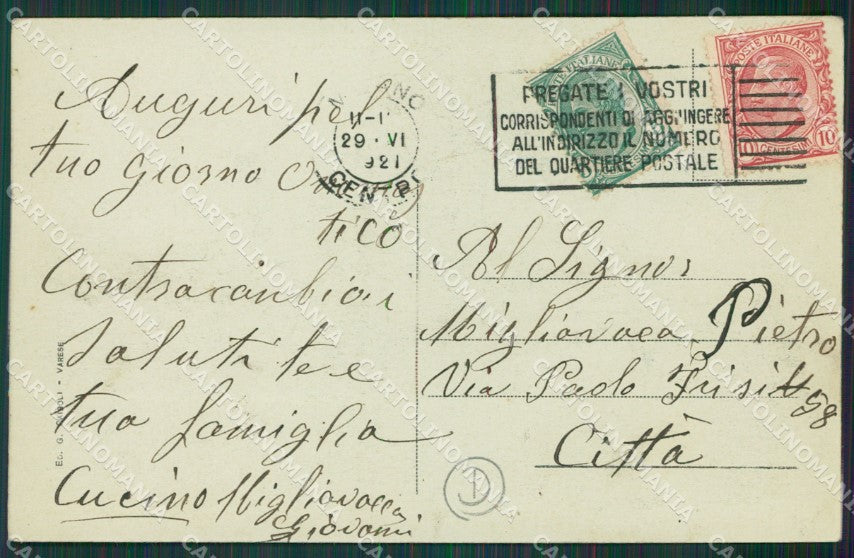 Auguri pel
tuo giorno Onomas
tico
Contracanbiai
saluti te e
tua famiglia
Cucino Migliavacca
Giovanni
ED. G. - VARESE
MILANO
29 · VI
921
CENTRO
PREGATE I VOSTRI
CORRISPONDENTI DI AGGIUNGERE
ALL'INDIRIZZO IL NUMERO
DEL QUARTIERE POSTALE
POSTE ITALIANE
POSTE ITALIANE
10 CENTESIMI 10
Al Signor
Migliavaca Pietro
Via Paolo Frisi 4
58
Città
CARTOLINOMANIA